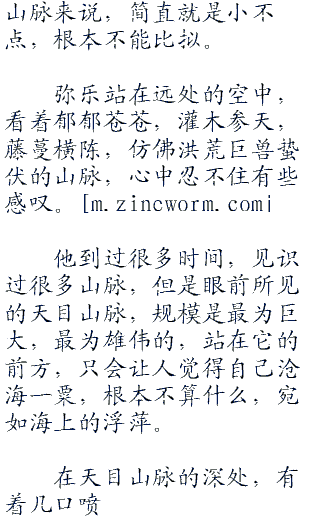 山脉来说，简直就是小不
点，根本不能比拟。
弥乐站在远处的空中，
看着郁郁苍苍，灌木参天，
藤蔓横陈，仿佛洪荒巨兽蛰
伏的山脉，心中忍不住有些
感叹。[m.zincworm.com|
他到过很多时间，见识
过很多山脉，但是眼前所见
的天目山脉，规模是最为巨
大，最为雄伟的，站在它的
前方，只会让人觉得自己沧
海一粟，根本不算什么，宛
如海上的浮萍。
在天目山脉的深处，有
着几口喷